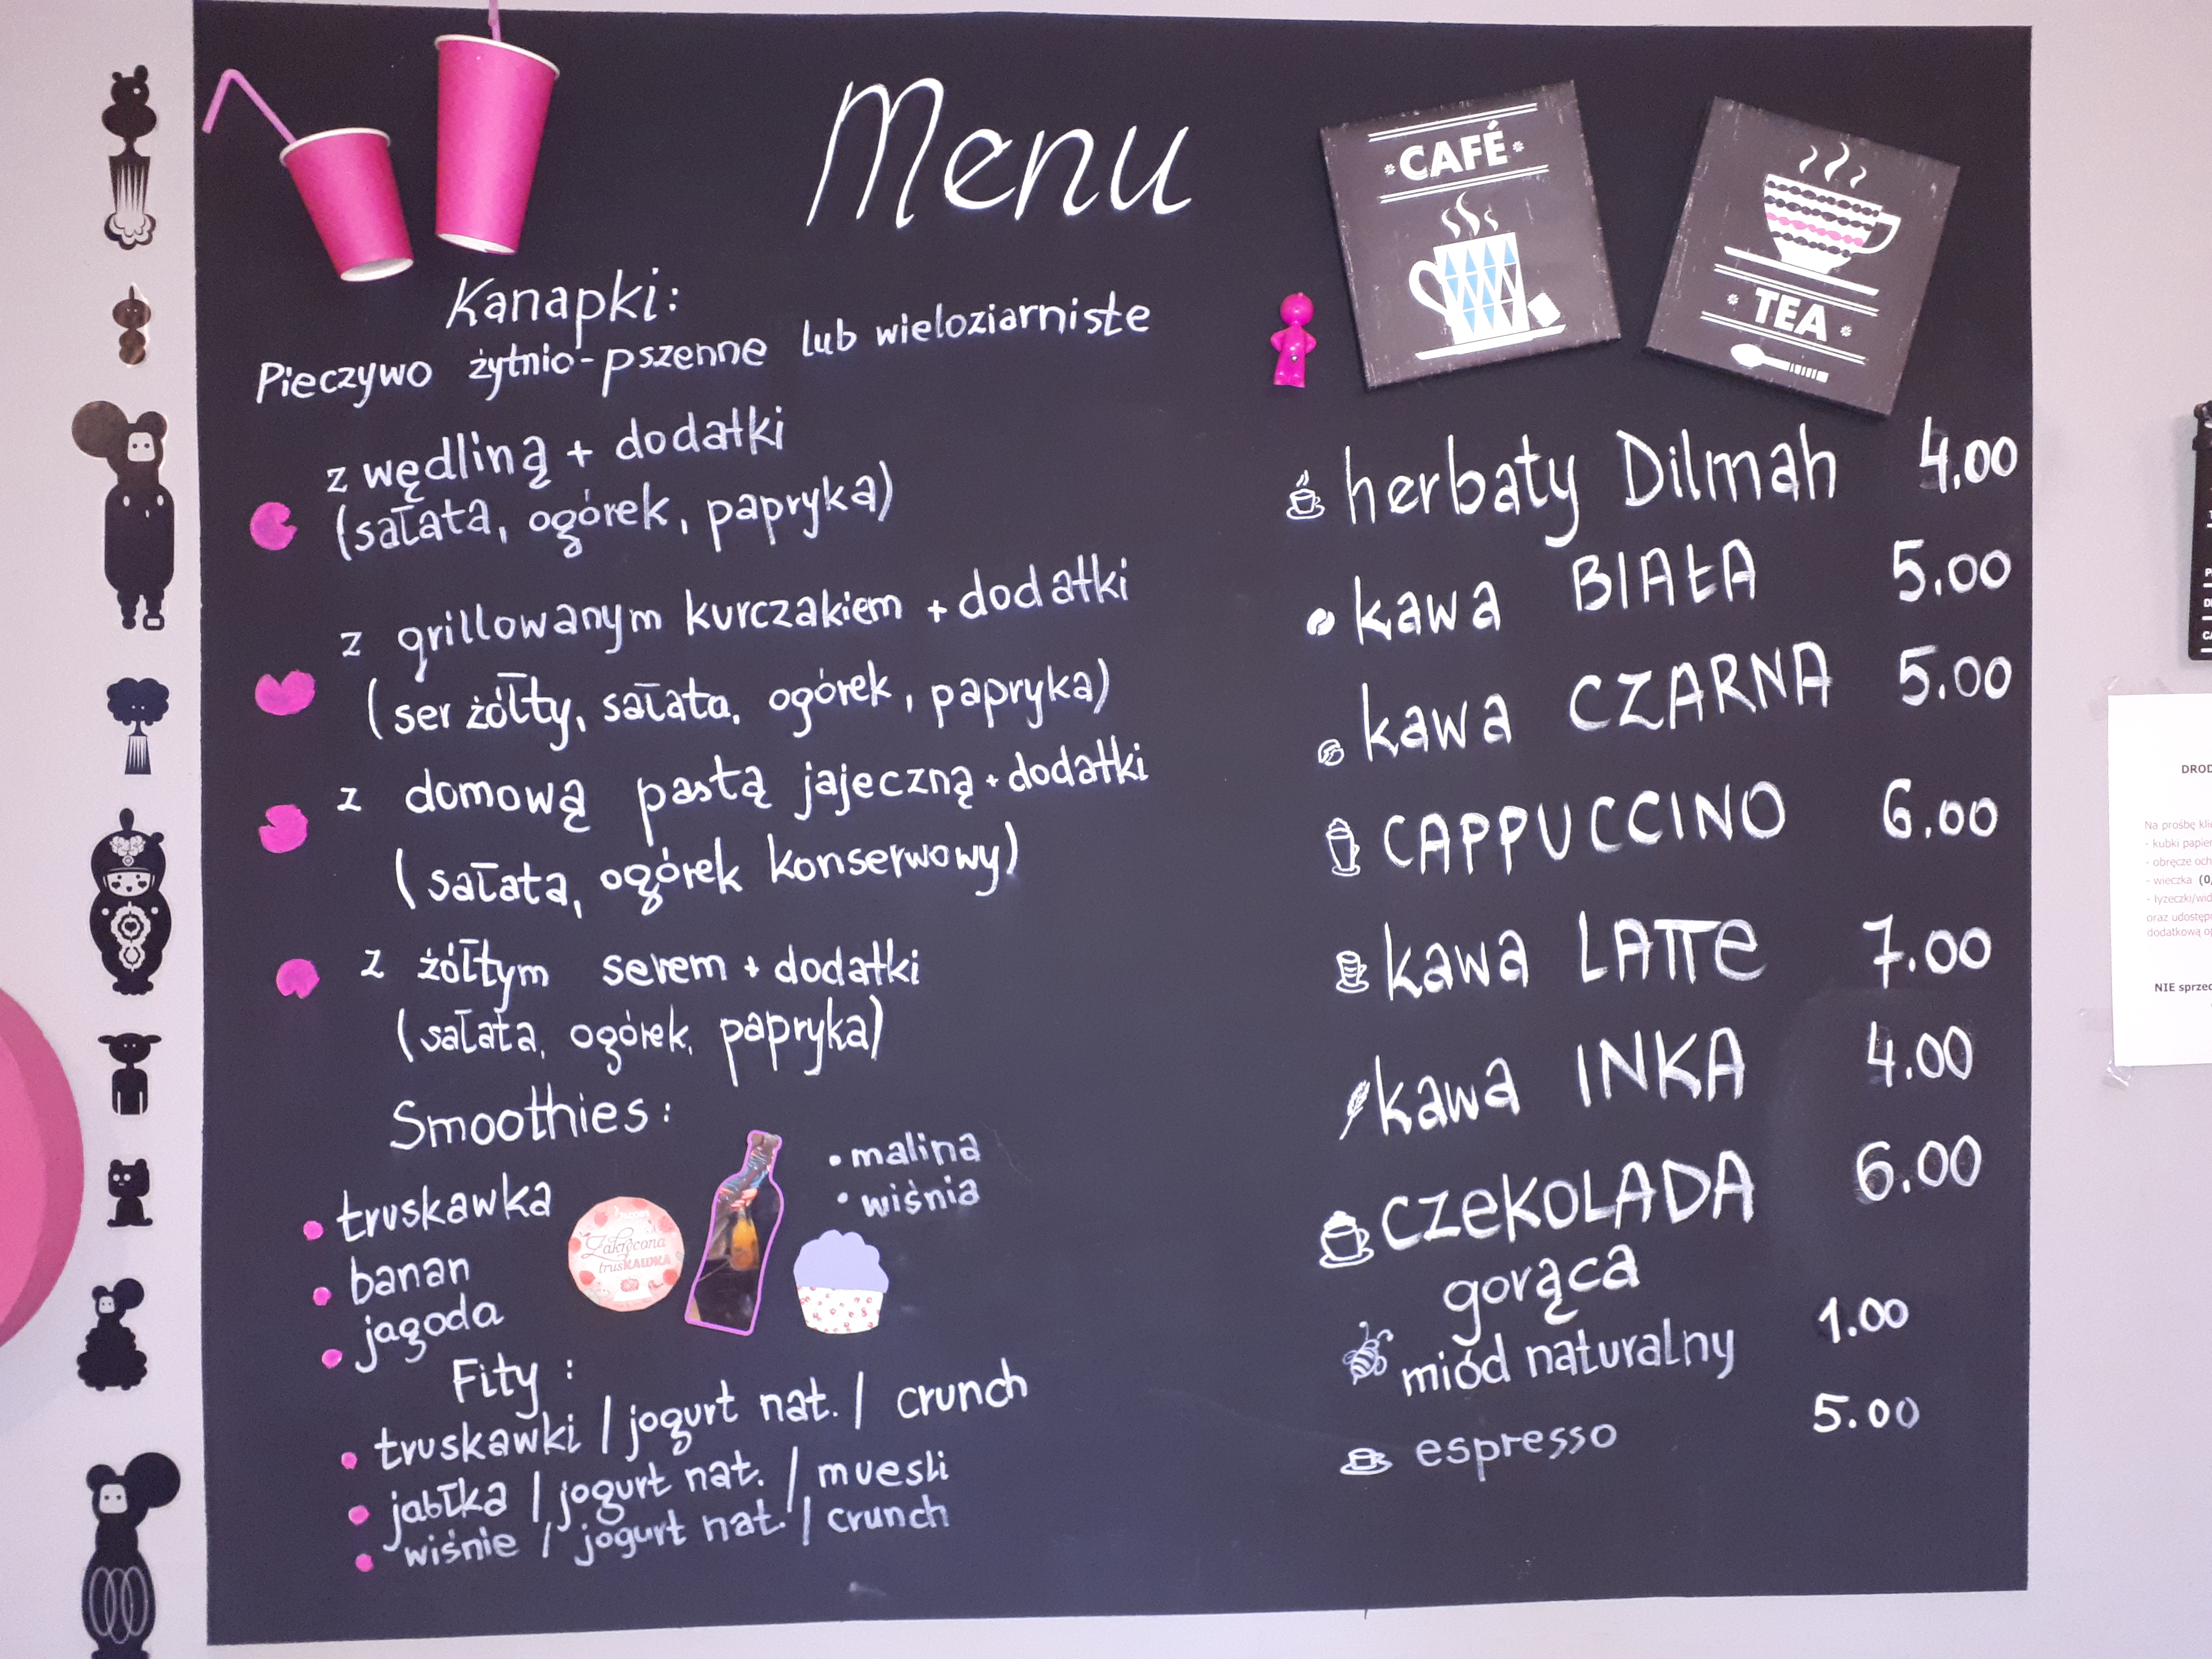 Menu
Kanapki:
Pieczywo żytnio-pszenne lub wieloziarniste
z wędliną + dodatki
(sałata, ogórek, papryka)
z grillowanym kurczakiem + dodatki
(ser żółty, sałata, ogórek, papryka)
z domową pastą jajeczną + dodatki
(sałata, ogórek konserwowy)
z żółtym serem + dodatki
(sałata, ogórek, papryka)
Smoothies:
• truskawka
• banan
• jagoda
• malina
• wiśnia
Zakręcona
trusKAWKA
Fity:
• truskawki / jogurt nat. / crunch
• jabłka / jogurt nat. / muesli
• wiśnie / jogurt nat. / crunch
CAFÉ
TEA
herbaty Dilmah 4.00
kawa BIAŁA 5.00
kawa CZARNA 5.00
CAPPUCCINO 6.00
kawa LATTe 7.00
kawa INKA 4.00
CZeKOLADA 6.00
gorąca
miód naturalny 1.00
espresso 5.00
DROD
Na prośbę kli
- kubki papier
- obręcze och
- wieczka (0,
- łyżeczki/wid
oraz udostęp
dodatkową op
NIE sprzed